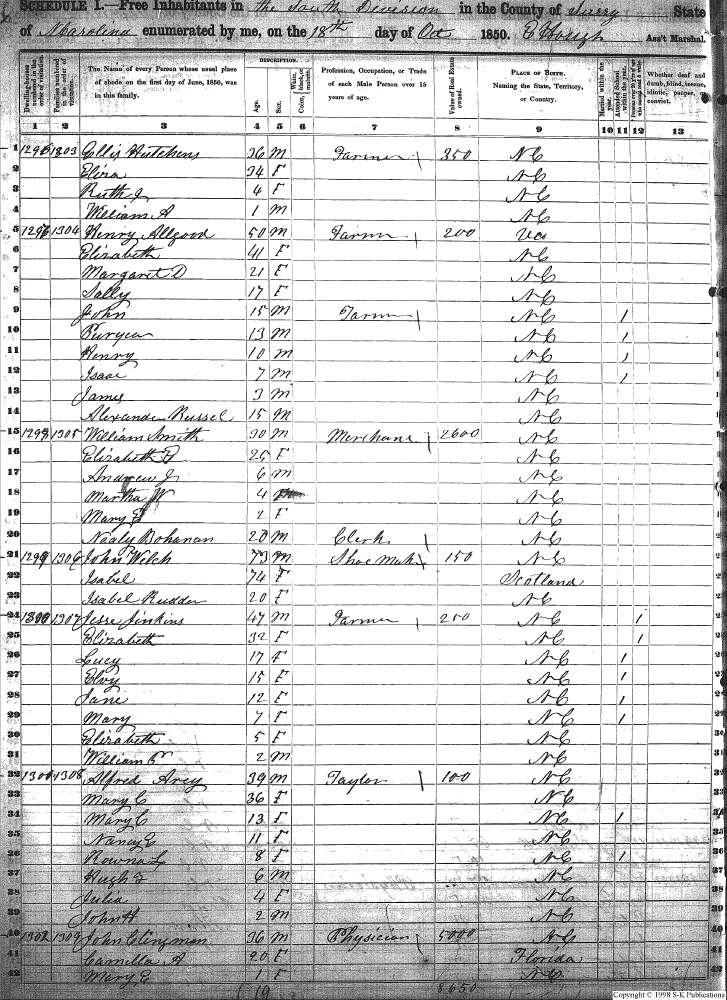 SCHEDULE I.—Free Inhabitants in the South Division in the County of Surry State
of N Carolina enumerated by me, on the 18th day of Oct 1850. E Hough Ass't Marshal.
DESCRIPTION.
Dwelling-houses numbered in the order of visitation.
Families numbered in the order of visitation.
The Name of every Person whose usual place of abode on the first day of June, 1850, was in this family.
Age.
Sex.
Color, White, black, or mulatto.
Profession, Occupation, or Trade of each Male Person over 15 years of age.
Value of Real Estate owned.
PLACE OF BIRTH. Naming the State, Territory, or Country.
Married within the year.
Attended School within the year.
Whether deaf and dumb, blind, insane, idiotic, pauper, or convict.
1 2 3 4 5 6 7 8 9 10 11 12 13
1 1303 Ellis Hutchens 36 M Farmer 350 NC
2 Eliza 34 F NC
3 Ruth J 4 F NC
4 William A 1 M NC
5 1296 1304 Henry Allgood 50 M Farmer 200 Va
6 Elizabeth 41 F NC
7 Margaret D 21 F NC
8 Sally 17 F NC
9 John 15 M Farmer NC 1
10 Puryear 13 M NC 1
11 Henry 10 M NC 1
12 Isaac 7 M NC 1
13 James 3 M NC
14 Alexander Russel 15 M NC
15 1305 William Smith 30 M Merchant 2600 NC
16 Elizabeth 25 F NC
17 Andrew J 6 M NC
18 Martha W 4 F NC
19 Mary E 2 F NC
20 Nealy Bohanan 20 M Clerk NC
21 1299 1306 John Welch 73 M Shoe Mak 150 NC
22 Isabel 74 F Scotland
23 Isabel Rudder 20 F NC
24 1300 1307 Jesse Jinkins 47 M Farmer 250 NC 1
25 Elizabeth 32 F NC 1
26 Lucy 17 F NC 1
27 Elvy 15 F NC 1
28 Jane 12 F NC 1
29 Mary 7 F NC 1
30 Elizabeth 5 F NC
31 William 2 M NC
32 1301 1308 Alfred Arey 39 M Taylor 100 NC
33 Mary C 36 F NC
34 Mary C 13 F NC 1
35 Nancy E 11 F NC
36 Rowna L 8 F NC 1
37 Hugh F 6 M NC
38 Julia 4 F NC
39 John H 2 M NC
40 1302 1309 John Clingman 36 M Physician 5000 NC
41 Camilla A 20 F Florida
42 Mary E 1 F NC
8650
Copyright © 1998 S-K Publications